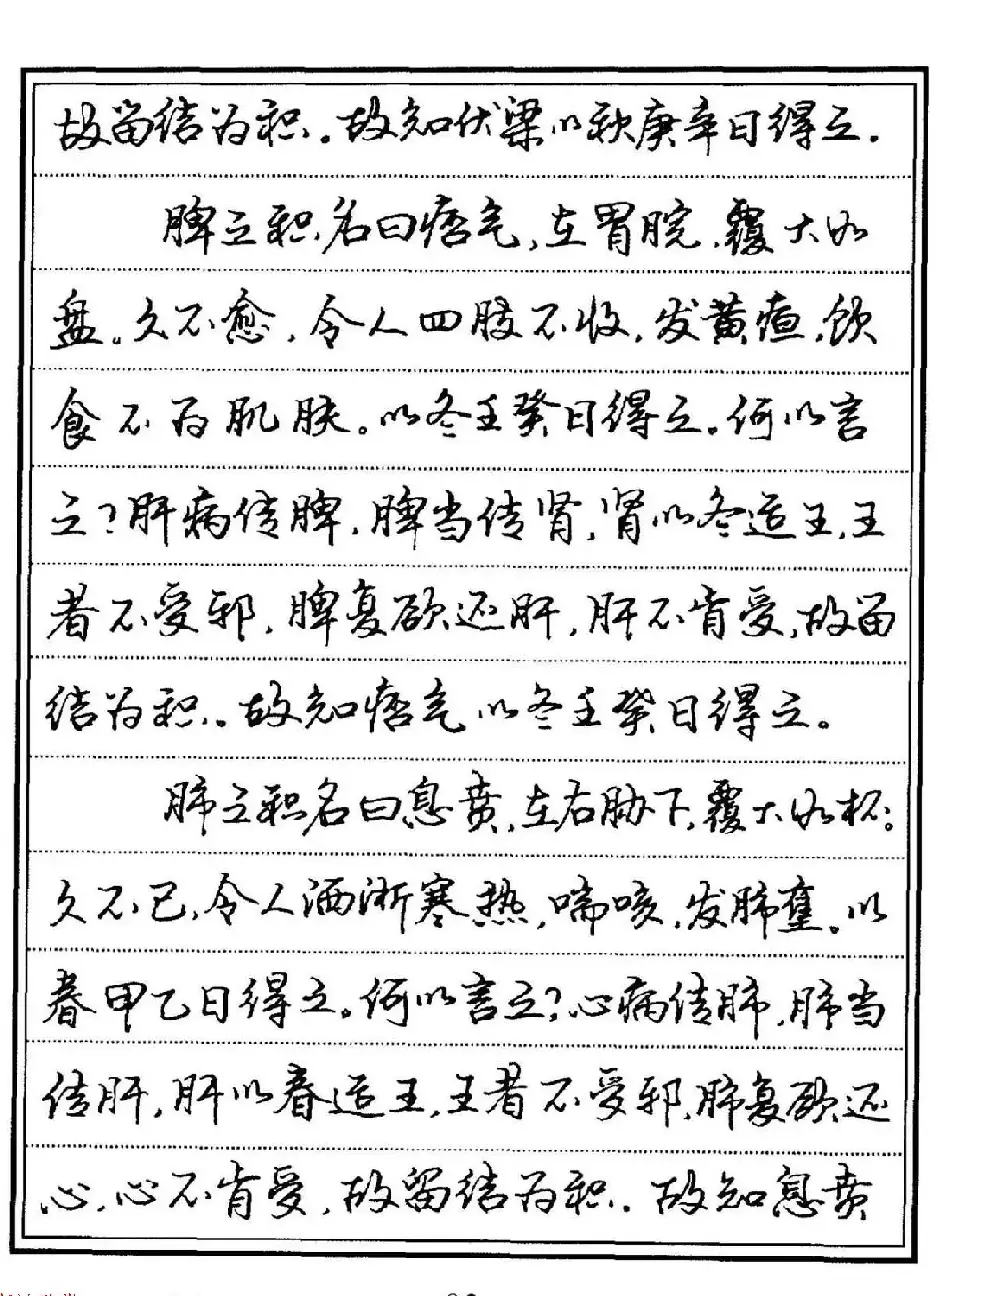 故留结为积。故知伏梁以秋庚辛日得之。
脾之积,名曰痞气,在胃脘,覆大如
盘。久不愈,令人四肢不收,发黄疸,饮
食不为肌肤。以冬壬癸日得之。何以言
之?肝病传脾,脾当传肾,肾以冬适王,王
者不受邪,脾复欲还肝,肝不肯受,故留
结为积。故知痞气以冬壬癸日得之。
肺之积名曰息贲,在右胁下,覆大如杯。
久不已,令人洒淅寒热,喘咳,发肺壅。以
春甲乙日得之。何以言之?心病传肺,肺当
传肝,肝以春适王,王者不受邪,肺复欲还
心,心不肯受,故留结为积。故知息贲